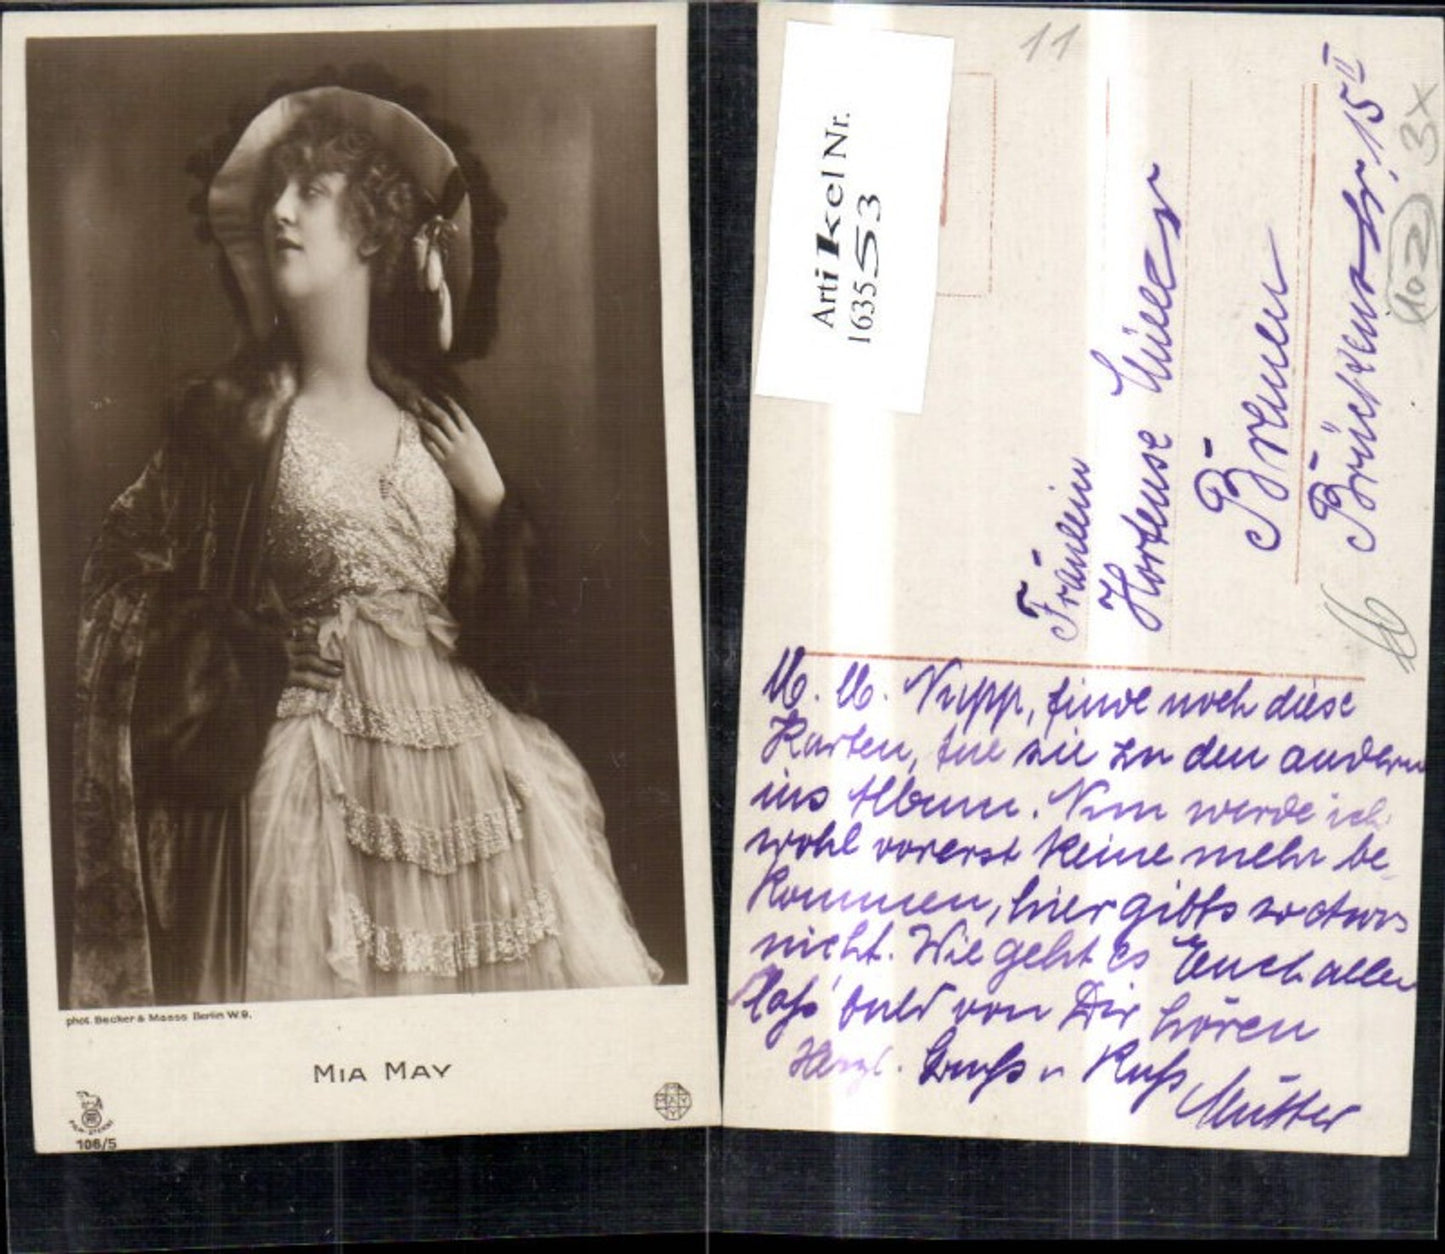 phot. Becker & Maass Berlin W.9.
MIA MAY
FILM STERNE
106/5
MAY
Artikel Nr.
1635553
11
3x
102
Fräulein
Hortense Müller
Bremen
15 II
M. Nupp, finde noch diese
Karten, tue sie zu den andern
ins Album. Nun werde ich
wohl vorerst keine mehr be-
kommen, hier gibts so etwas
nicht. Wie geht es Euch allen
laß' bald von Dir hören
Herzl. Gruß u Kuß
Mutter